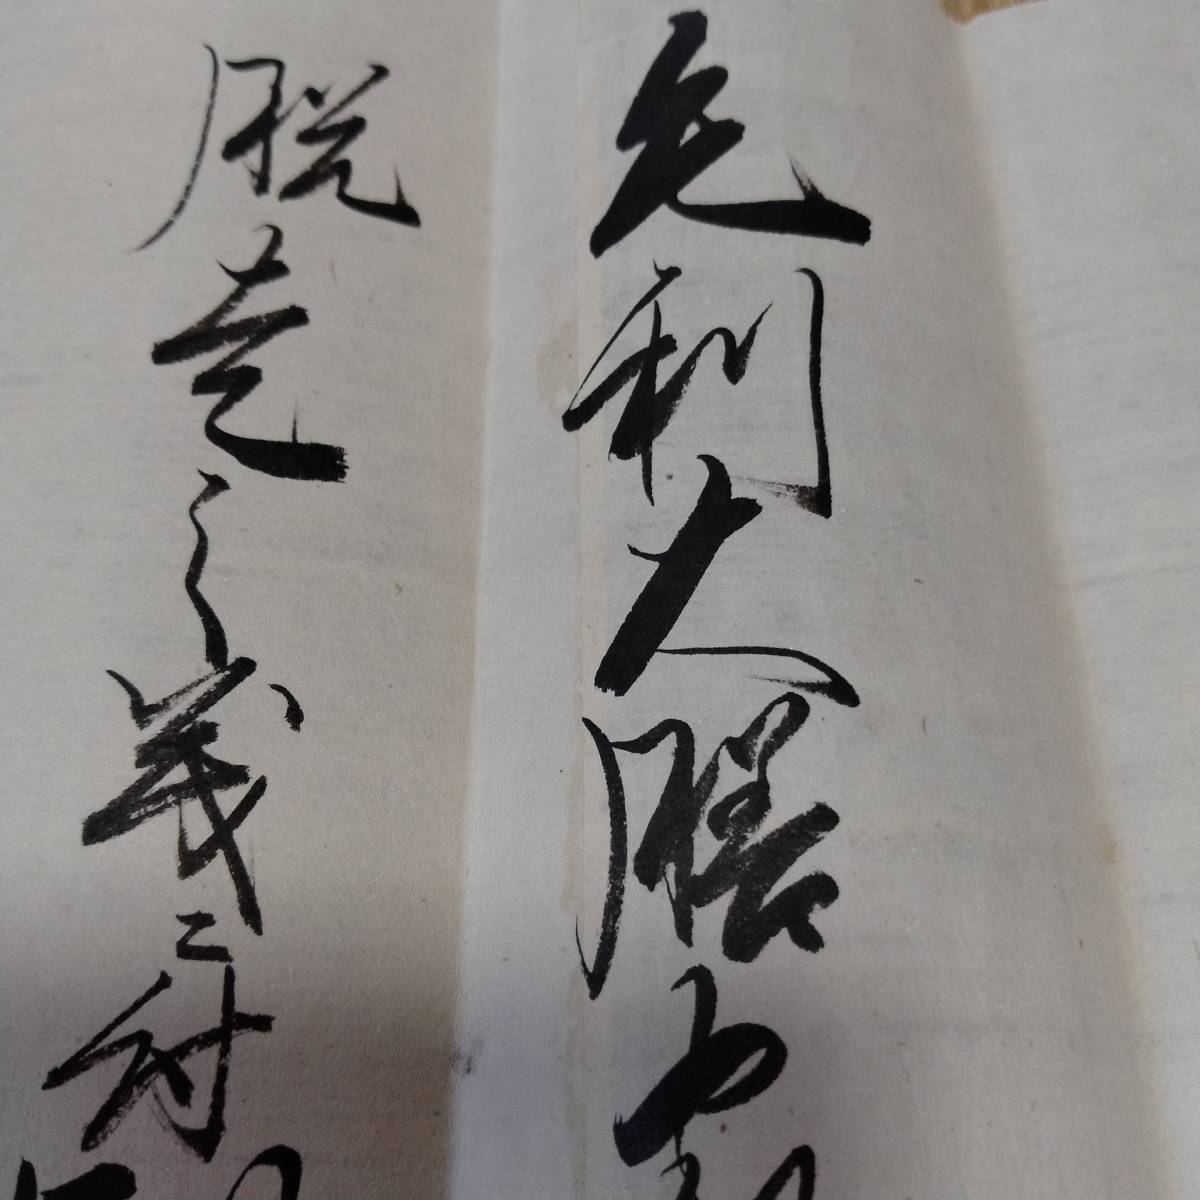 毛利大膳
脱走之義ニ付